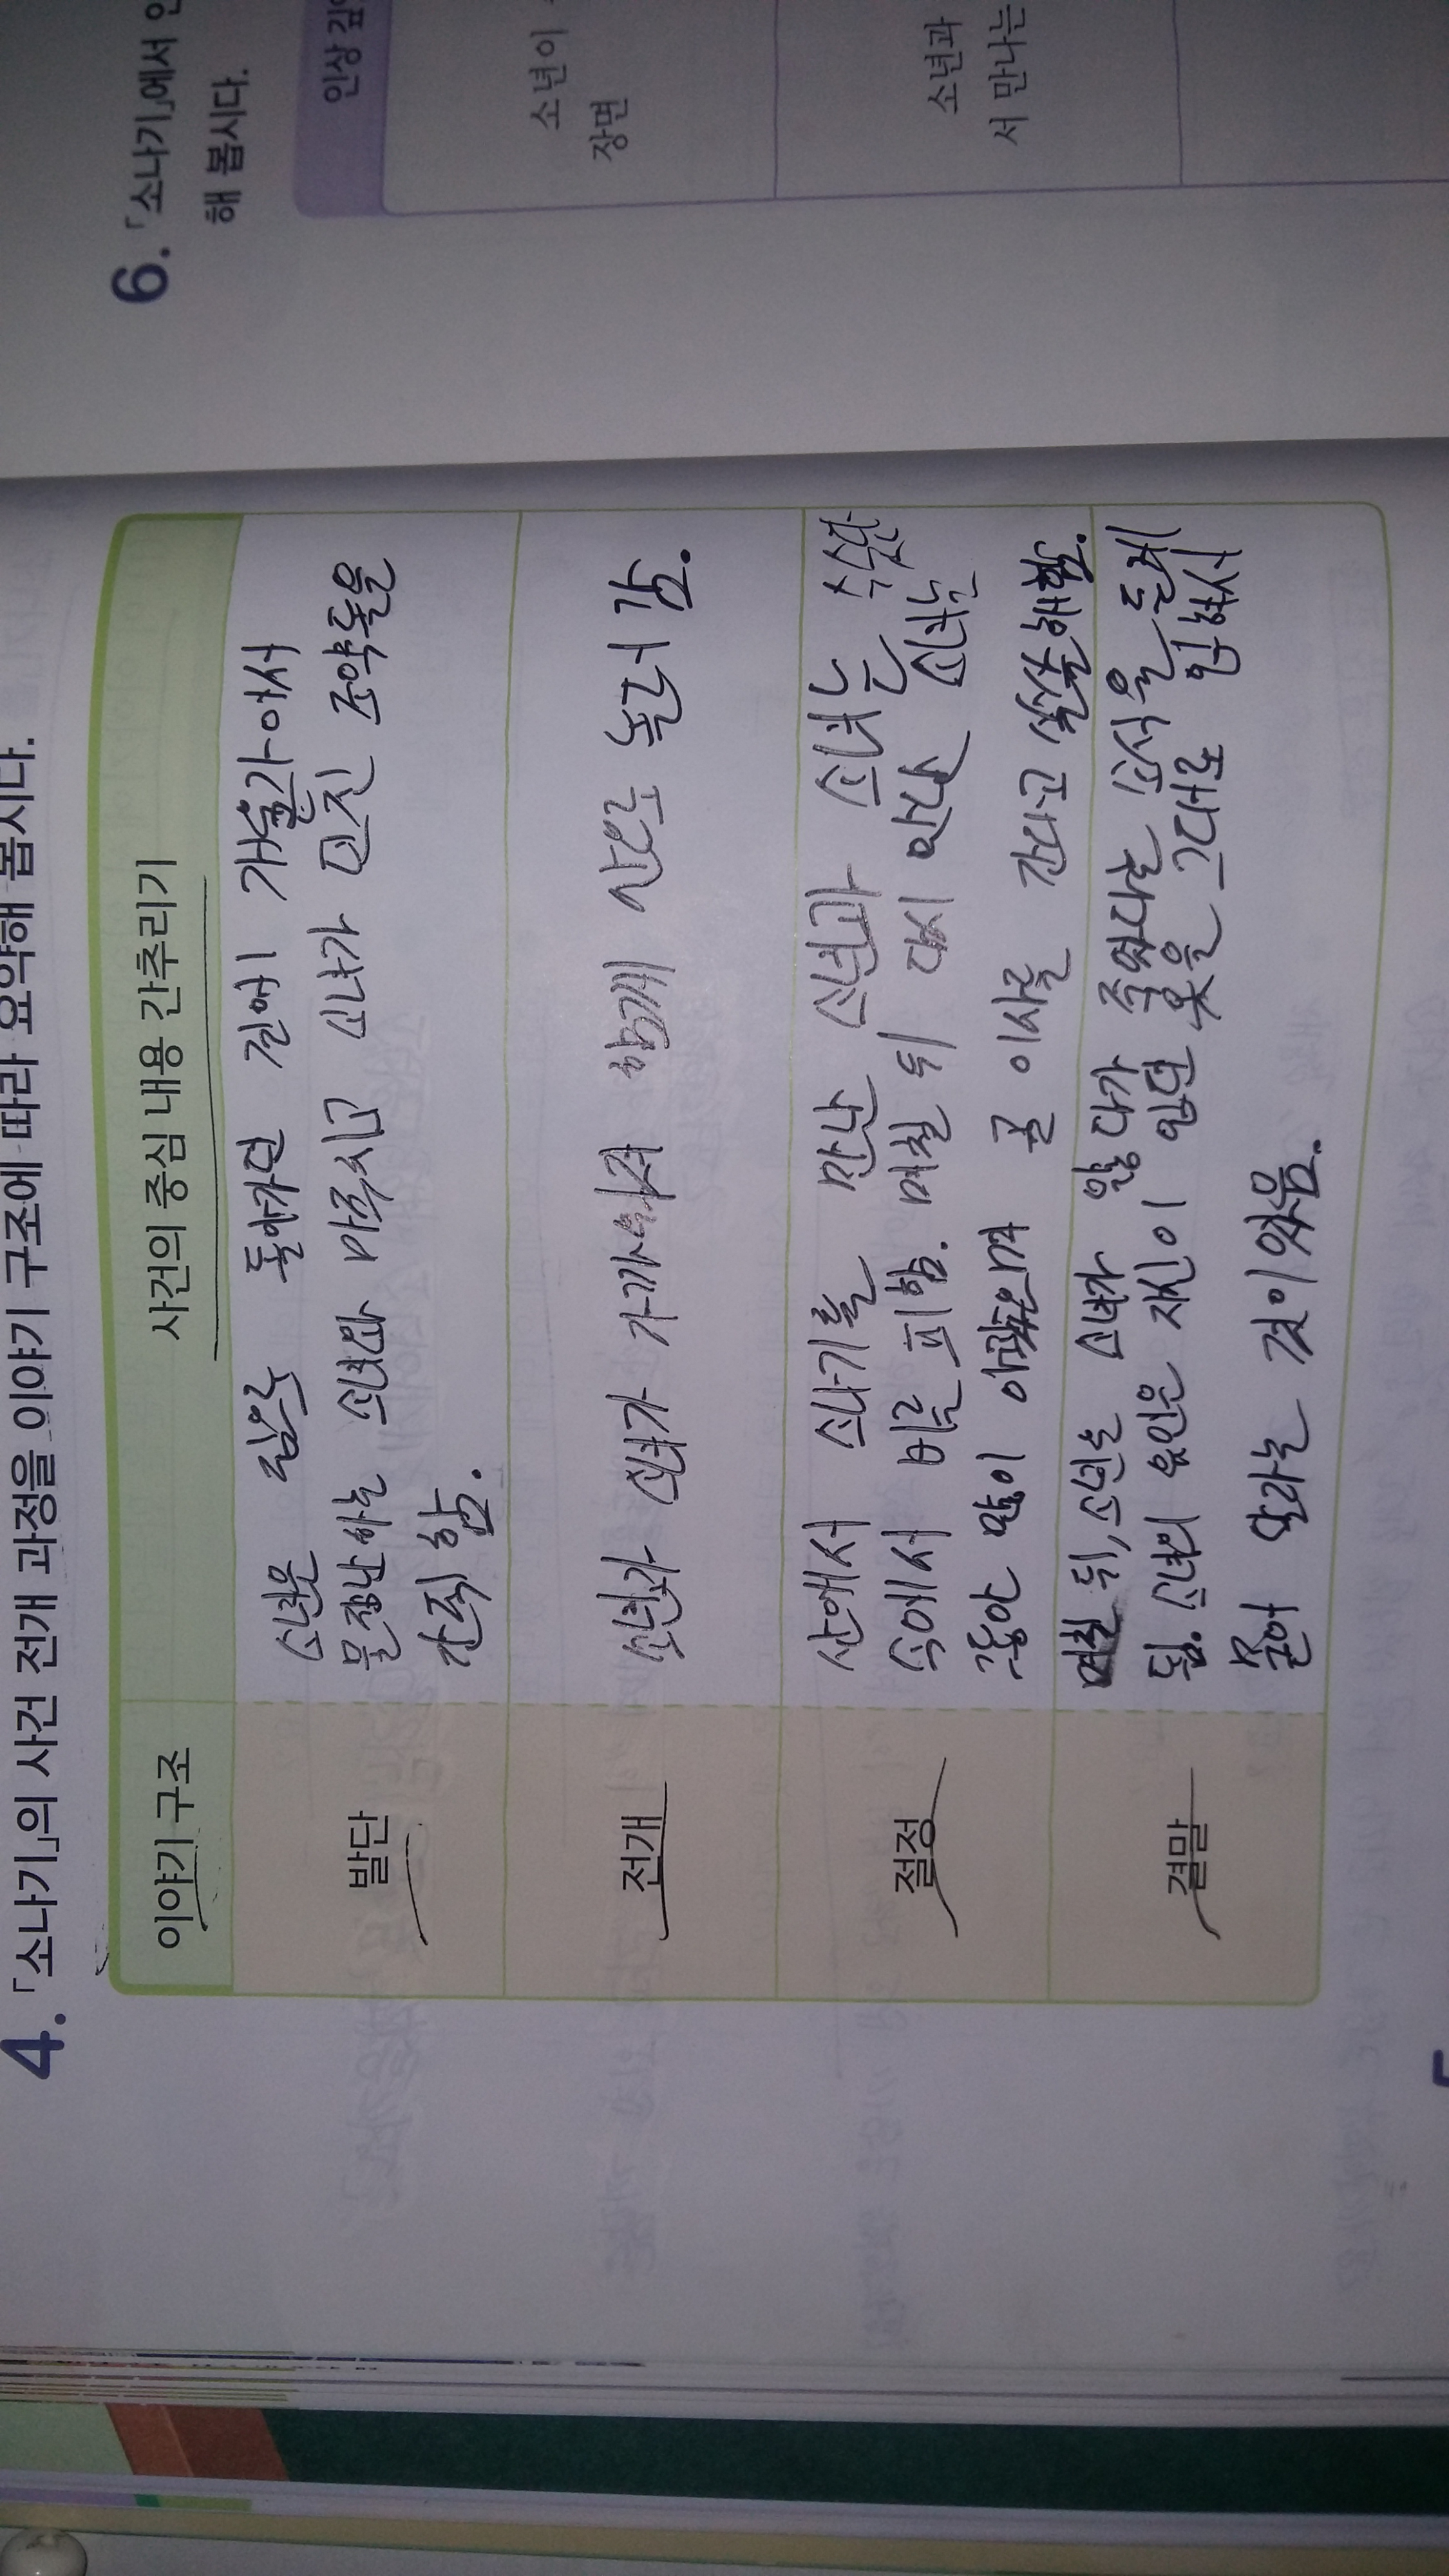 4. 「소나기」의 사건 전개 과정을 이야기 구조에 따라 요약해 봅시다.
이야기 구조
사건의 중심 내용 간추리기
발단
소년은 집으로 돌아가던 길에 개울가에서
물장난하는 소녀와 마주치고 소녀가 던진 조약돌을
간직함.
전개
소년과 소녀가 가까워져 함께 산으로 놀러 감.
절정
산에서 소나기를 만난 소년과 소녀는 수숫단
속에서 비를 피함. 며칠 뒤 다시 만난 소녀는
그동안 많이 아팠으며 곧 이사를 간다고 쓸쓸해함.
결말
며칠 뒤, 소년은 소녀가 앓다가 죽었다는 소식을 듣게
됨. 소녀의 유언은 자신이 입던 옷을 그대로 입혀서
묻어 달라는 것이었음.
6. 「소나기」에서
해 봅시다.
인상
소년이
장면
소년과
서 만나는